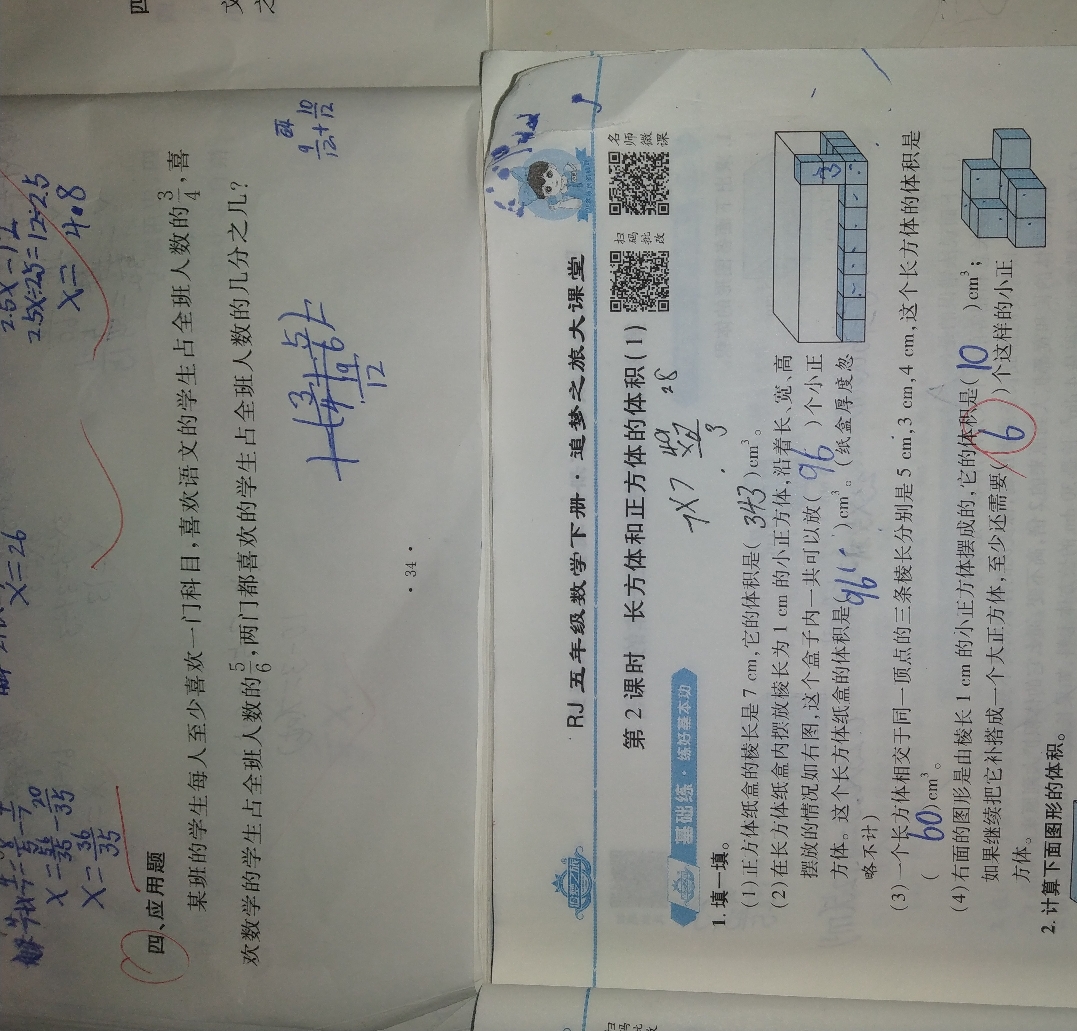 四
2.5x=12
2.5x÷2.5=12÷2.5
x=4.8
x=26
x=\frac{56}{35}-\frac{20}{35}
x=\frac{36}{35}
四、应用题
某班的学生每人至少喜欢一门科目,喜欢语文的学生占全班人数的\frac{3}{4},喜
欢数学的学生占全班人数的\frac{5}{6},两门都喜欢的学生占全班人数的几分之几?
\frac{9}{12}+\frac{10}{12}
\frac{3}{4}+\frac{5}{6}
\frac{19}{12}
· 34 ·
RJ 五年级数学下册·追梦之旅大课堂
扫码批改
名师微课
第2课时 长方体和正方体的体积(1)
7×7
基础练·练好基本功
1. 填一填。
(1)正方体纸盒的棱长是 7 cm,它的体积是( 343 )cm³。
(2)在长方体纸盒内摆放棱长为 1 cm 的小正方体,沿着长、宽、高
摆放的情况如右图,这个盒子内一共可以放( 96 )个小正
方体。这个长方体纸盒的体积是( 96 )cm³。(纸盒厚度忽
略不计)
(3)一个长方体相交于同一顶点的三条棱长分别是 5 cm,3 cm,4 cm,这个长方体的体积是
( 60 )cm³。
(4)右面的图形是由棱长 1 cm 的小正方体摆成的,它的体积是( 10 )cm³;
如果继续把它补搭成一个大正方体,至少还需要( 16 )个这样的小正
方体。
2. 计算下面图形的体积。